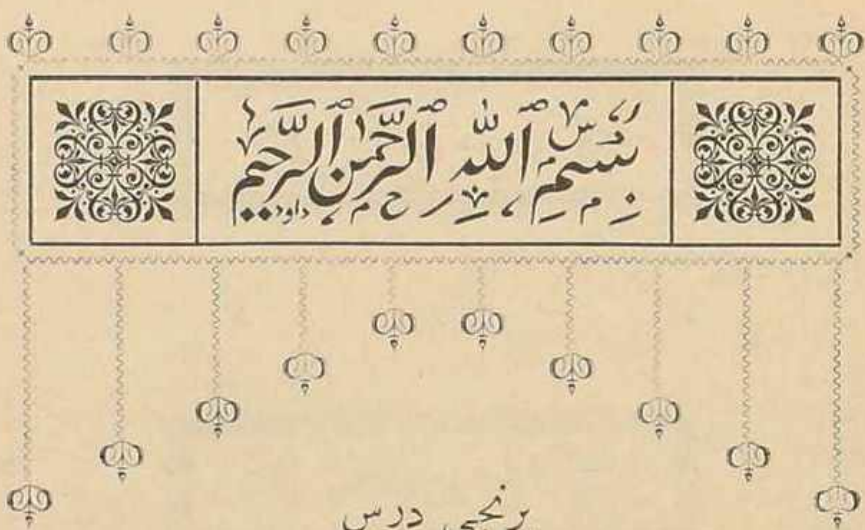 بِسْمِ ٱللّٰهِ ٱلرَّحْمٰنِ ٱلرَّحِيمِ
داود
برنجی درس